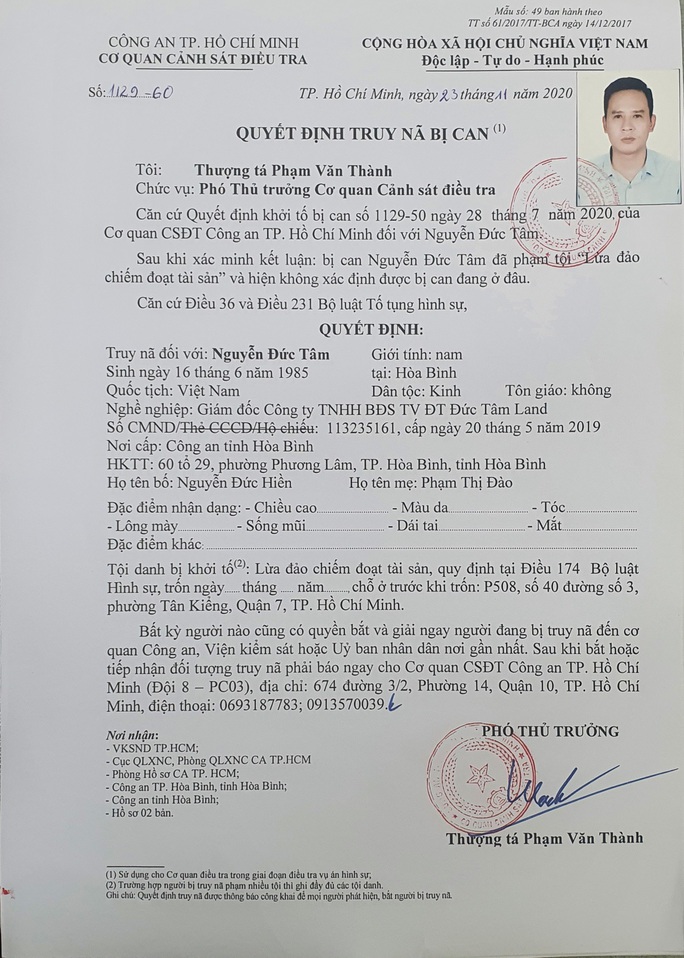 Mẫu số: 49 ban hành theo
TT số 61/2017/TT-BCA ngày 14/12/2017
CÔNG AN TP. HỒ CHÍ MINH
CƠ QUAN CẢNH SÁT ĐIỀU TRA
CỘNG HÒA XÃ HỘI CHỦ NGHĨA VIỆT NAM
Độc lập - Tự do - Hạnh phúc
Số: 1129-60
TP. Hồ Chí Minh, ngày 23 tháng 11 năm 2020
QUYẾT ĐỊNH TRUY NÃ BỊ CAN (1)
Tôi: Thượng tá Phạm Văn Thành
Chức vụ: Phó Thủ trưởng Cơ quan Cảnh sát điều tra
Căn cứ Quyết định khởi tố bị can số 1129-50 ngày 28 tháng 7 năm 2020 của
Cơ quan CSĐT Công an TP. Hồ Chí Minh đối với Nguyễn Đức Tâm.
Sau khi xác minh kết luận: bị can Nguyễn Đức Tâm đã phạm tội “Lừa đảo
chiếm đoạt tài sản” và hiện không xác định được bị can đang ở đâu.
Căn cứ Điều 36 và Điều 231 Bộ luật Tố tụng hình sự,
QUYẾT ĐỊNH:
Truy nã đối với: Nguyễn Đức Tâm Giới tính: nam
Sinh ngày 16 tháng 6 năm 1985 tại: Hòa Bình
Quốc tịch: Việt Nam Dân tộc: Kinh Tôn giáo: không
Nghề nghiệp: Giám đốc Công ty TNHH BĐS TV ĐT Đức Tâm Land
Số CMND/Thẻ CCCD/Hộ chiếu: 113235161, cấp ngày 20 tháng 5 năm 2019
Nơi cấp: Công an tỉnh Hòa Bình
HKTT: 60 tổ 29, phường Phương Lâm, TP. Hòa Bình, tỉnh Hòa Bình
Họ tên bố: Nguyễn Đức Hiền Họ tên mẹ: Phạm Thị Đảo
Đặc điểm nhận dạng: - Chiều cao - Màu da - Tóc
- Lông mày - Sống mũi - Dái tai - Mắt
Đặc điểm khác:
Tội danh bị khởi tố(2): Lừa đảo chiếm đoạt tài sản, quy định tại Điều 174 Bộ luật
Hình sự, trốn ngày...... tháng ..... năm......., chỗ ở trước khi trốn: P508, số 40 đường số 3,
phường Tân Kiểng, Quận 7, TP. Hồ Chí Minh.
Bất kỳ người nào cũng có quyền bắt và giải ngay người đang bị truy nã đến cơ
quan Công an, Viện kiểm sát hoặc Uỷ ban nhân dân nơi gần nhất. Sau khi bắt hoặc
tiếp nhận đối tượng truy nã phải báo ngay cho Cơ quan CSĐT Công an TP. Hồ Chí
Minh (Đội 8 – PC03), địa chỉ: 674 đường 3/2, Phường 14, Quận 10, TP. Hồ Chí
Minh, điện thoại: 0693187783; 0913570039.
Nơi nhận:
- VKSND TP.HCM;
- Cục QLXNC, Phòng QLXNC CA TP.HCM
- Phòng Hồ sơ CA TP. HCM;
- Công an TP. Hòa Bình, tỉnh Hòa Bình;
- Công an tỉnh Hòa Bình;
- Hồ sơ 02 bản.
PHÓ THỦ TRƯỞNG
Thượng tá Phạm Văn Thành
(1) Sử dụng cho Cơ quan điều tra trong giai đoạn điều tra vụ án hình sự;
(2) Trường hợp người bị truy nã phạm nhiều tội thì ghi đầy đủ các tội danh.
Ghi chú: Quyết định truy nã được thông báo công khai để mọi người phát hiện, bắt người bị truy nã.